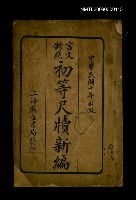 NMTL20090200145
中華民國十年出版
言文對照
初等尺牘新編
上海廣益書局發行